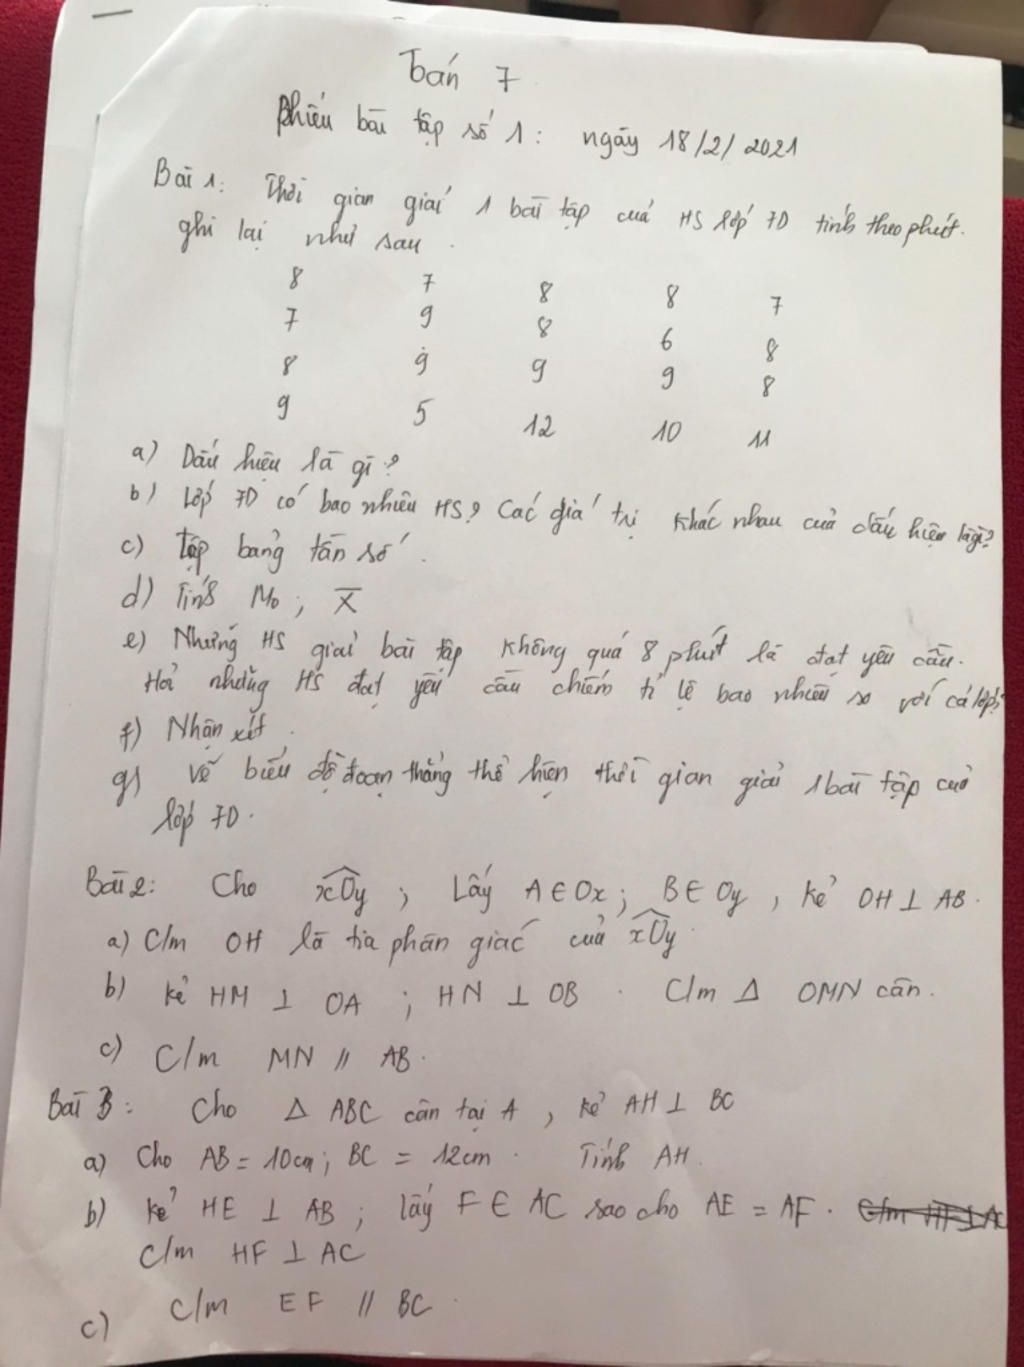 Toán 7
Phiếu bài tập số 1: ngày 18/2/2021
Bài 1: Thời gian giải 1 bài tập của HS lớp 7D tính theo phút.
ghi lại như sau.
8 7 8 8 7
7 9 8 6 8
8 9 9 9 8
9 5 12 10 11
a) Dấu hiệu là gì?
b) Lớp 7D có bao nhiêu HS? Các giá trị khác nhau của dấu hiệu là gì?
c) Lập bảng tần số.
d) Tính Mo; X̅
e) Những HS giải bài tập không quá 8 phút là đạt yêu cầu.
Hỏi những HS đạt yêu cầu chiếm tỉ lệ bao nhiêu so với cả lớp?
f) Nhận xét.
g) Vẽ biểu đồ đoạn thẳng thể hiện thời gian giải 1 bài tập của
lớp 7D.
Bài 2: Cho xOy; Lấy A ∈ Ox; B ∈ Oy, kẻ OH ⊥ AB.
a) C/m OH là tia phân giác của xOy.
b) kẻ HM ⊥ OA; HN ⊥ OB. C/m Δ OMN cân.
c) C/m MN // AB.
Bài 3: Cho Δ ABC cân tại A, kẻ AH ⊥ BC
a) Cho AB = 10cm; BC = 12cm. Tính AH.
b) kẻ HE ⊥ AB; lấy F ∈ AC sao cho AE = AF. C/m HF ⊥ AC
C/m HF ⊥ AC
c) C/m EF // BC.